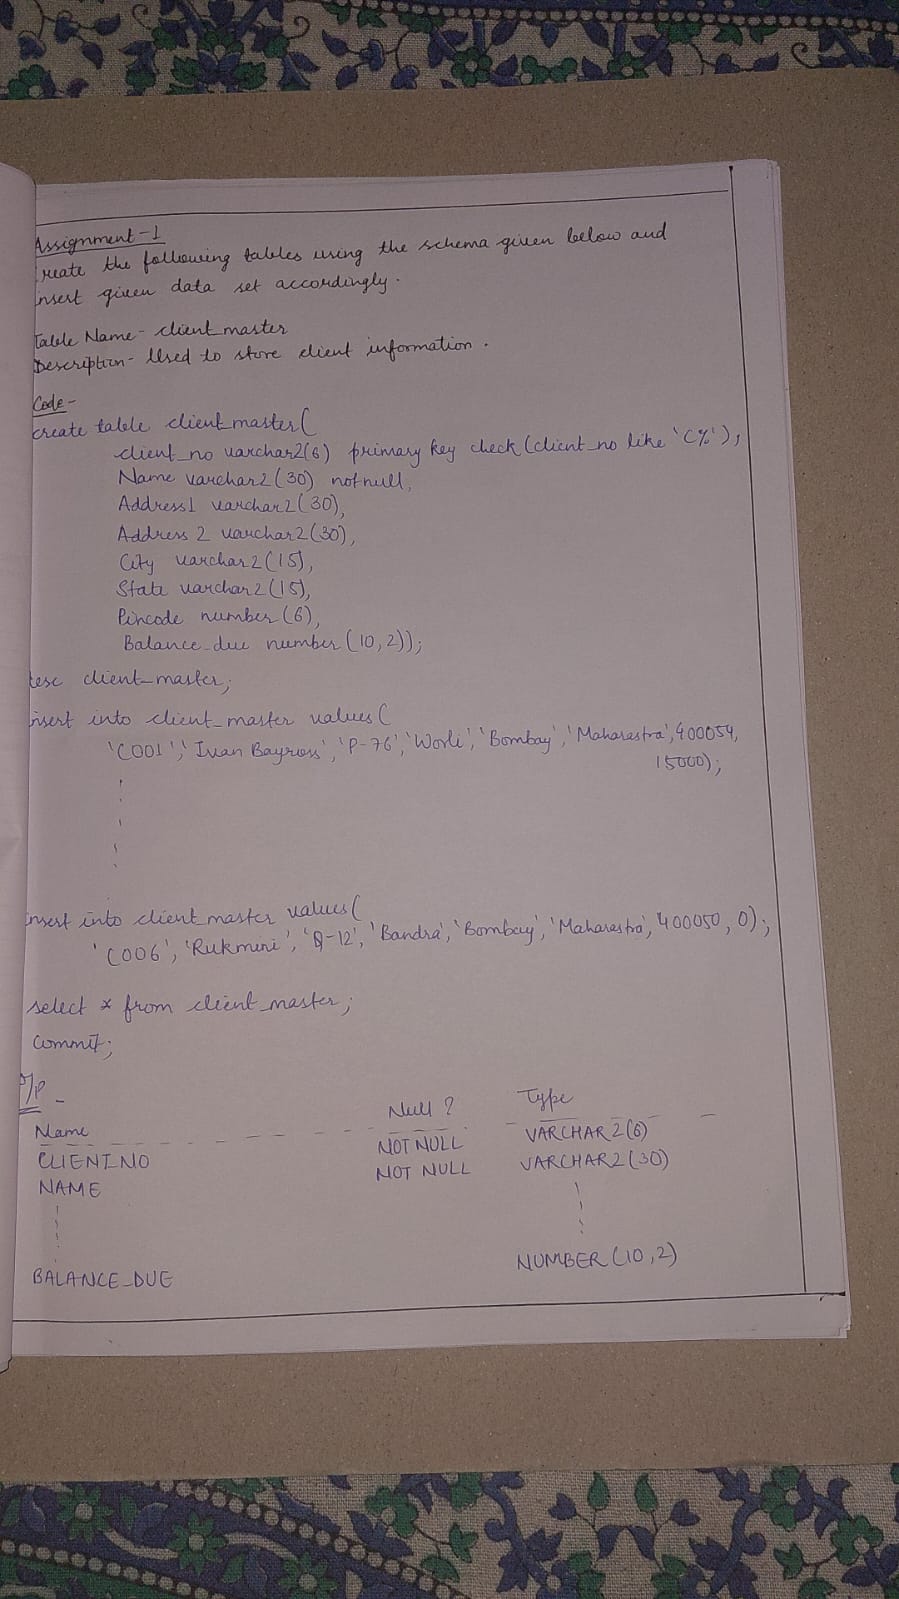 Assignment-1
Create the following tables using the schema given below and
insert given data set accordingly.
Table Name- client_master
Description- Used to store client information.
Code-
create table client_master(
client_no varchar2(6) primary key check (client_no like 'C%'),
Name varchar2(30) not null,
Address1 varchar2(30),
Address 2 varchar2(30),
City varchar2(15),
State varchar2(15),
Pincode number(6),
Balance_due number(10,2));
desc client_master;
insert into client_master values(
'C001','Ivan Bayross','P-76','Worli','Bombay','Maharastra',400054,
15000);
insert into client_master values(
'C006','Rukmini','Q-12','Bandra','Bombay','Maharastra',400050,0);
select * from client_master;
Commit;
O/P -
Name Null? Type
CLIENT_NO NOT NULL VARCHAR2(6)
NAME NOT NULL VARCHAR2(30)
BALANCE_DUE NUMBER(10,2)